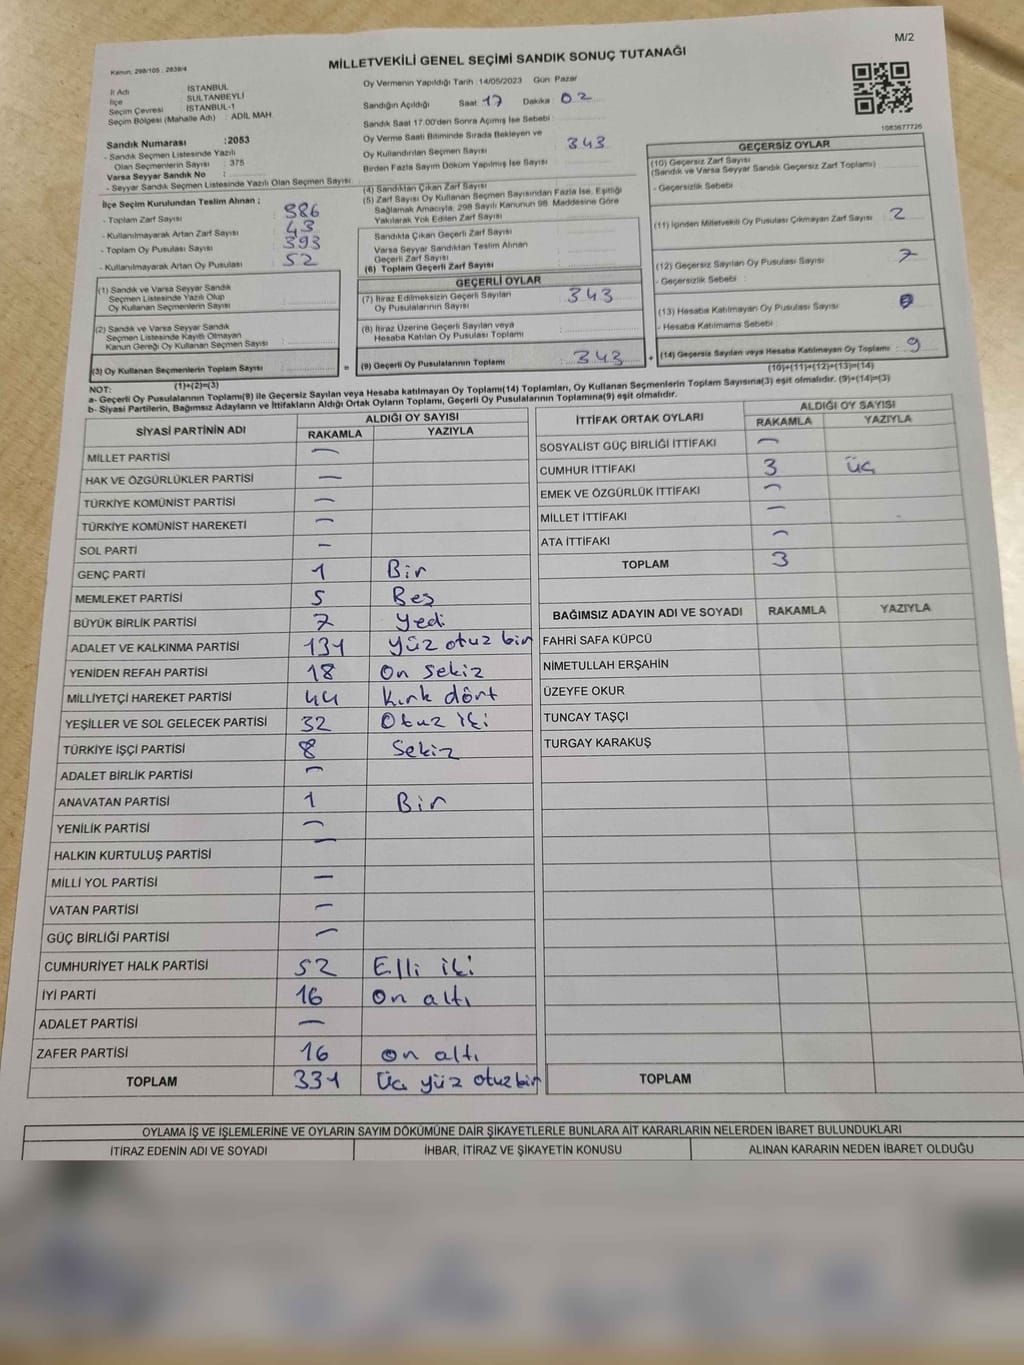 M/2
Kanun: 298/105 , 2839/4
MİLLETVEKİLİ GENEL SEÇİMİ SANDIK SONUÇ TUTANAĞI
İl Adı : İSTANBUL
İlçe : SULTANBEYLİ
Seçim Çevresi : İSTANBUL-1
Seçim Bölgesi (Mahalle Adı) : ADİL MAH.
Sandık Numarası :2053
- Sandık Seçmen Listesinde Yazılı
Olan Seçmenlerin Sayısı : 375
Varsa Seyyar Sandık No :
- Seyyar Sandık Seçmen Listesinde Yazılı Olan Seçmen Sayısı:
İlçe Seçim Kurulundan Teslim Alınan ;
- Toplam Zarf Sayısı : 386
- Kullanılmayarak Artan Zarf Sayısı : 43
- Toplam Oy Pusulası Sayısı : 393
- Kullanılmayarak Artan Oy Pusulası : 52
(1) Sandık ve Varsa Seyyar Sandık
Seçmen Listesinde Yazılı Olup
Oy Kullanan Seçmenlerin Sayısı :
(2) Sandık ve Varsa Seyyar Sandık
Seçmen Listesinde Kayıtlı Olmayan
Kanun Gereği Oy Kullanan Seçmen Sayısı :
(3) Oy Kullanan Seçmenlerin Toplam Sayısı :
(1)+(2)=(3)
Oy Vermenin Yapıldığı Tarih :14/05/2023 Gün: Pazar
Sandığın Açıldığı Saat 17 Dakika 02
Sandık Saat 17.00'den Sonra Açımış İse Sebebi :
Oy Verme Saati Bitiminde Sırada Bekleyen ve
Oy Kullandırılan Seçmen Sayısı : 343
Birden Fazla Sayım Döküm Yapılmış İse Sayısı :
(4) Sandıktan Çıkan Zarf Sayısı :
(5) Zarf Sayısı Oy Kullanan Seçmen Sayısından Fazla İse, Eşitliği
Sağlamak Amacıyla, 298 Sayılı Kanunun 98. Maddesine Göre
Yakılarak Yok Edilen Zarf Sayısı :
Sandıkta Çıkan Geçerli Zarf Sayısı :
Varsa Seyyar Sandıktan Teslim Alınan
Geçerli Zarf Sayısı :
(6) Toplam Geçerli Zarf Sayısı :
GEÇERLİ OYLAR
(7) İtiraz Edilmeksizin Geçerli Sayılan
Oy Pusulalarının Sayısı : 343
(8) İtiraz Üzerine Geçerli Sayılan veya
Hesaba Katılan Oy Pusulası Toplamı :
= (9) Geçerli Oy Pusulalarının Toplamı : 343 +
1083677726
GEÇERSİZ OYLAR
(10) Geçersiz Zarf Sayısı
(Sandık ve Varsa Seyyar Sandık Geçersiz Zarf Toplamı) :
- Geçersizlik Sebebi :
(11) İçinden Milletvekili Oy Pusulası Çıkmayan Zarf Sayısı : 2
(12) Geçersiz Sayılan Oy Pusulası Sayısı : 7
- Geçersizlik Sebebi :
(13) Hesaba Katılmayan Oy Pusulası Sayısı :
- Hesaba Katılmama Sebebi :
(14) Geçersiz Sayılan veya Hesaba Katılmayan Oy Toplamı : 9
(10)+(11)+(12)+(13)=(14)
NOT:
a- Geçerli Oy Pusulaları Toplamı(9) ile Geçersiz Sayılan veya Hesaba katılmayan Oy Toplamı(14) Toplamları, Oy Kullanan Seçmenlerin Toplam Sayısına(3) eşit olmalıdır. (9)+(14)=(3)
b- Siyasi Partilerin, Bağımsız Adayların ve İttifakların Aldığı Ortak Oyların Toplamı, Geçerli Oy Pusulalarının Toplamına(9) eşit olmalıdır.
SİYASİ PARTİNİN ADI ALDIĞI OY SAYISI
RAKAMLA YAZIYLA
MİLLET PARTİSİ —
HAK VE ÖZGÜRLÜKLER PARTİSİ —
TÜRKİYE KOMÜNİST PARTİSİ —
TÜRKİYE KOMÜNİST HAREKETİ —
SOL PARTİ —
GENÇ PARTİ 1 Bir
MEMLEKET PARTİSİ 5 Beş
BÜYÜK BİRLİK PARTİSİ 7 Yedi
ADALET VE KALKINMA PARTİSİ 131 Yüz otuz bir
YENİDEN REFAH PARTİSİ 18 On sekiz
MİLLİYETÇİ HAREKET PARTİSİ 44 Kırk dört
YEŞİLLER VE SOL GELECEK PARTİSİ 32 Otuz iki
TÜRKİYE İŞÇİ PARTİSİ 8 Sekiz
ADALET BİRLİK PARTİSİ —
ANAVATAN PARTİSİ 1 Bir
YENİLİK PARTİSİ —
HALKIN KURTULUŞ PARTİSİ —
MİLLİ YOL PARTİSİ —
VATAN PARTİSİ —
GÜÇ BİRLİĞİ PARTİSİ —
CUMHURİYET HALK PARTİSİ 52 Elli iki
İYİ PARTİ 16 On altı
ADALET PARTİSİ —
ZAFER PARTİSİ 16 on altı
TOPLAM 331 Üç yüz otuz bir
İTTİFAK ORTAK OYLARI ALDIĞI OY SAYISI
RAKAMLA YAZIYLA
SOSYALİST GÜÇ BİRLİĞİ İTTİFAKI —
CUMHUR İTTİFAKI 3 üç
EMEK VE ÖZGÜRLÜK İTTİFAKI —
MİLLET İTTİFAKI —
ATA İTTİFAKI —
TOPLAM 3
BAĞIMSIZ ADAYIN ADI VE SOYADI RAKAMLA YAZIYLA
FAHRİ SAFA KÜPCÜ
NİMETULLAH ERŞAHİN
ÜZEYFE OKUR
TUNCAY TAŞÇI
TURGAY KARAKUŞ
TOPLAM
OYLAMA İŞ VE İŞLEMLERİNE VE OYLARIN SAYIM DÖKÜMÜNE DAİR ŞİKAYETLERLE BUNLARA AİT KARARLARIN NELERDEN İBARET BULUNDUKLARI
İTİRAZ EDENİN ADI VE SOYADI İHBAR, İTİRAZ VE ŞİKAYETİN KONUSU ALINAN KARARIN NEDEN İBARET OLDUĞU